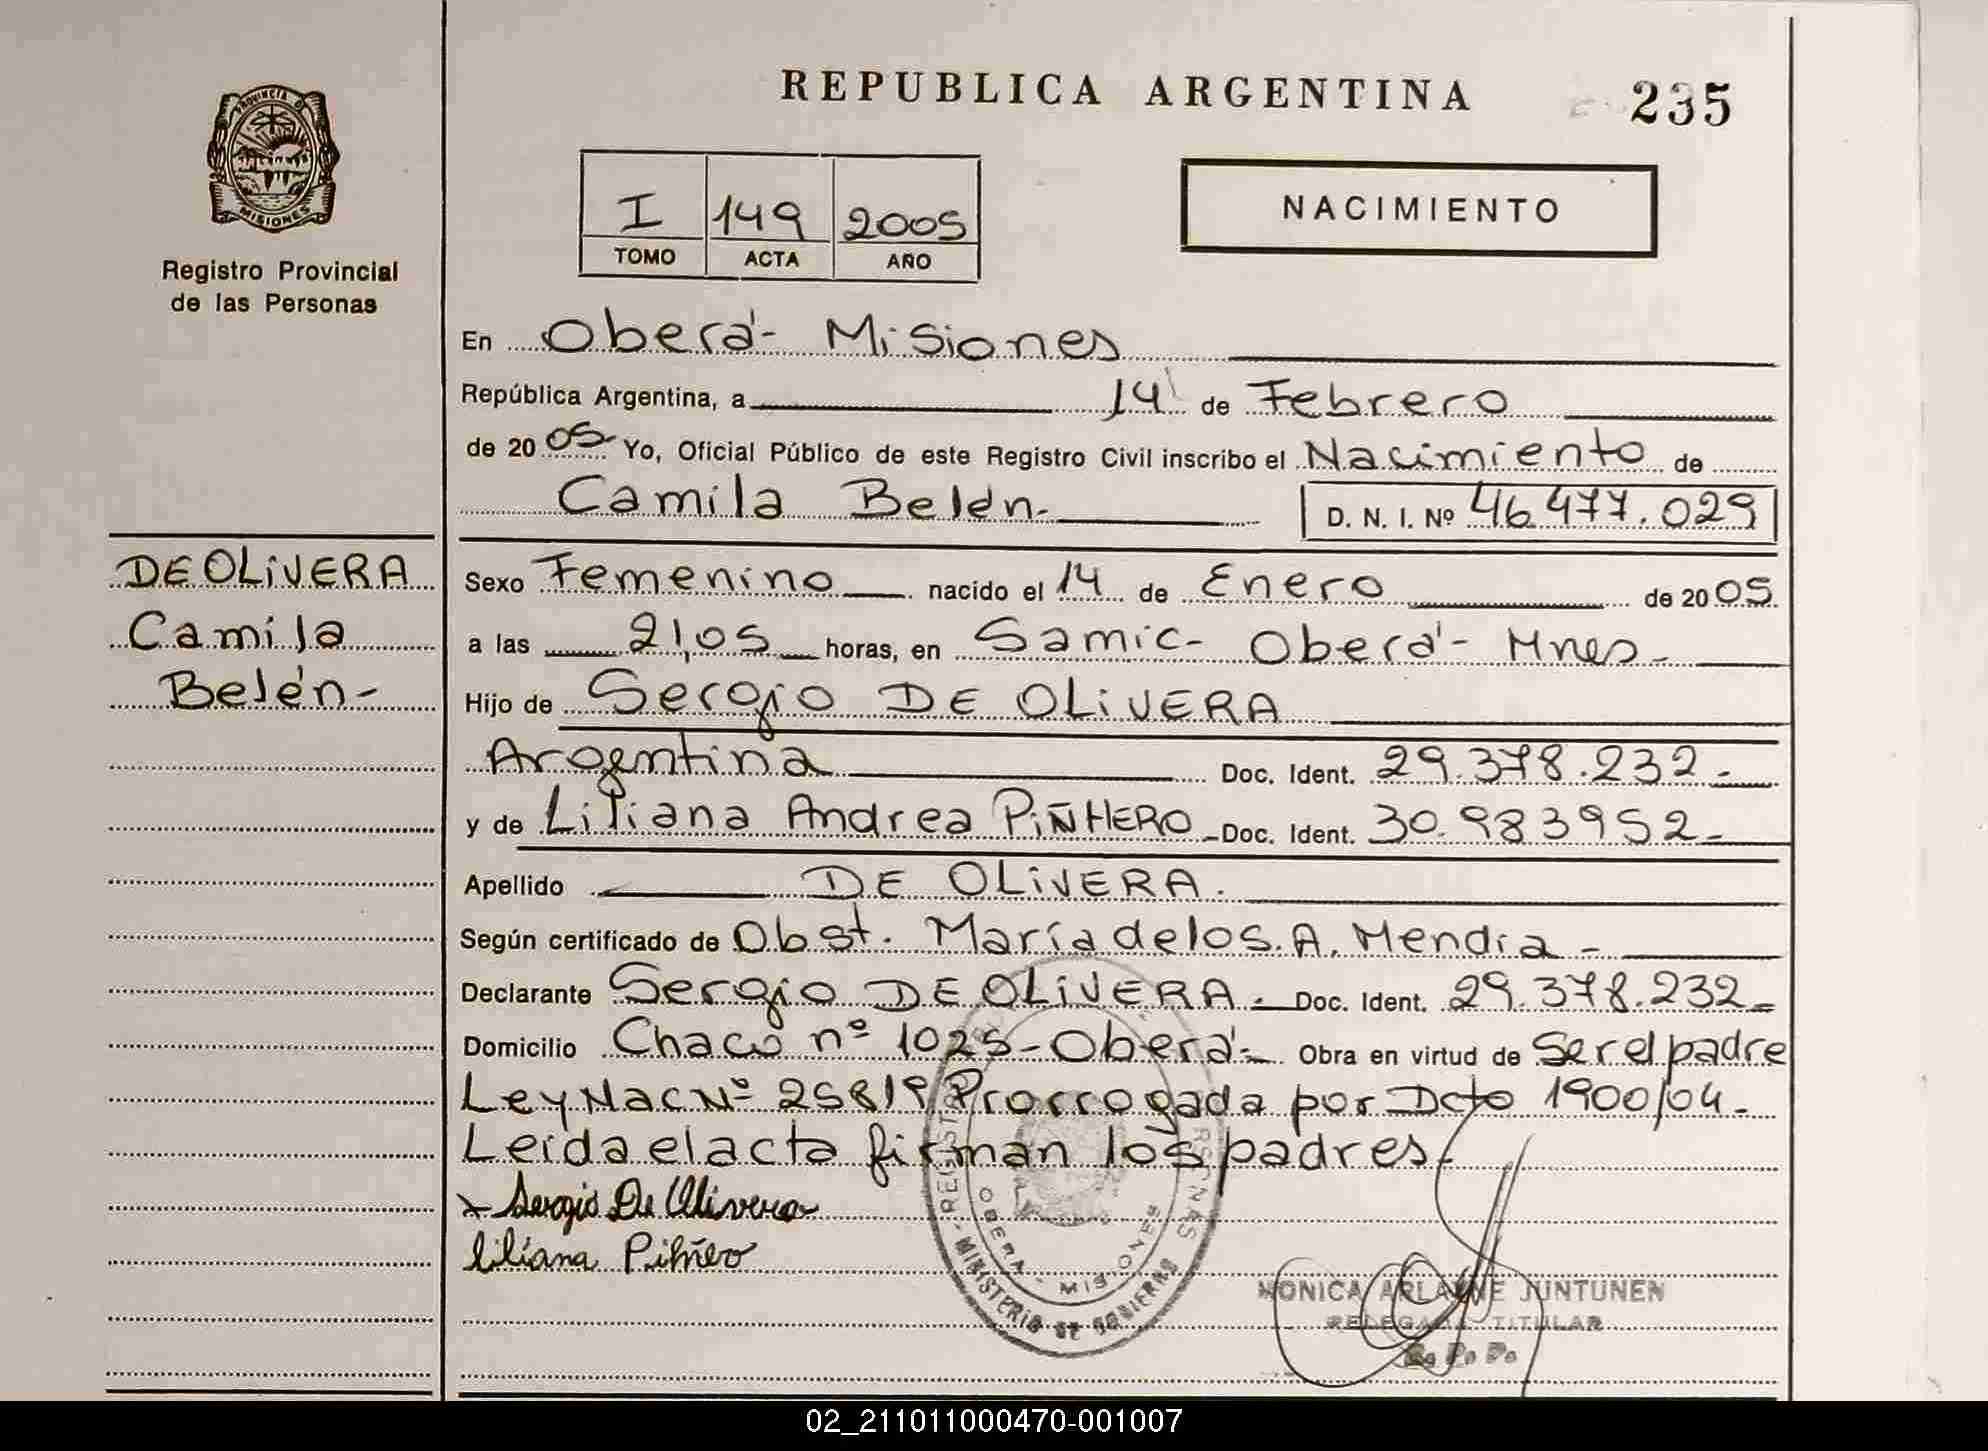 REPUBLICA ARGENTINA
235
PROVINCIA D
MISIONES
Registro Provincial
de las Personas
I 149 2005
TOMO ACTA AÑO
NACIMIENTO
En Oberá- Misiones
República Argentina, a 14 de Febrero
de 2005 Yo, Oficial Público de este Registro Civil inscribo el Nacimiento de
Camila Belén.- D. N. I. Nº 46.477.029
DE OLiVERA
Camila
Belén-
Sexo Femenino nacido el 14 de Enero de 2005
a las 21,05 horas, en Samic- Oberá- Mnes-
Hijo de Sergio DE OLiVERA
Argentina Doc. Ident. 29.378.232-
y de Liliana Andrea PiÑHERO - Doc. Ident. 30.983952-
Apellido DE OLiVERA.
Según certificado de Obst. María de los. A. Mendra -
Declarante Sergio DE OLiVERA. Doc. Ident. 29.378.232-
Domicilio Chaco nº 1025-Oberá- Obra en virtud de Ser el padre
Ley Nac Nº 25819 Prorrogada por Dcto 1900/04.-
Leida el acta firman los padres.
x Sergio De Olivera
liliana Piñero
OBERA - MISIONES
MINISTERIO DE GOBIERNO
MONICA ARLAINE JUNTUNEN
DELEGADA TITULAR
R. P. P.
02_211011000470-001007